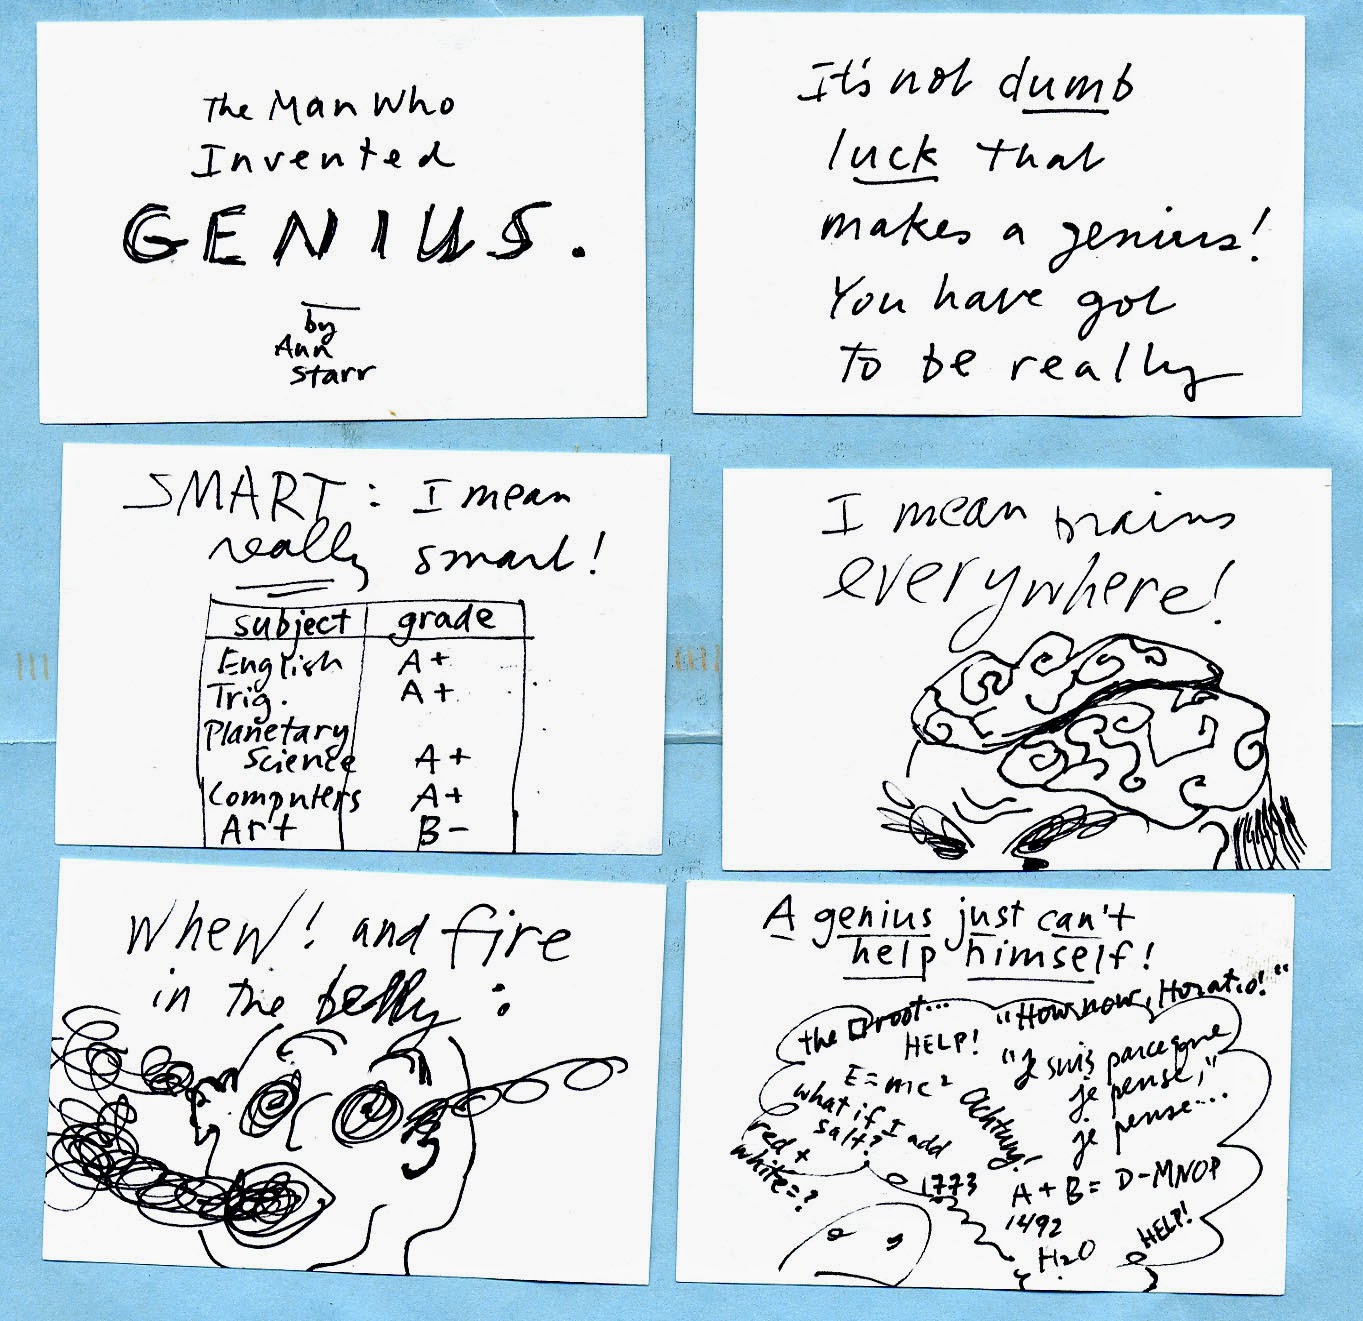 The Man Who
Invented
GENIUS.
by
Ann
Starr
It's not dumb
luck that
makes a genius!
You have got
to be really
SMART: I mean
really smart!
subject grade
English A+
Trig. A+
Planetary
Science A+
Computers A+
Art B-
I mean brains
everywhere!
Whew! and fire
in the belly:
A genius just can't
help himself!
the □root...
HELP!
"How now, Horatio!"
"Je suis parceque
je pense,"
je pense...
E=mc²
Achtung!
what if I add
salt?
red +
white=?
1773
A+B= D-MNOP
1492
H₂O
HELP!